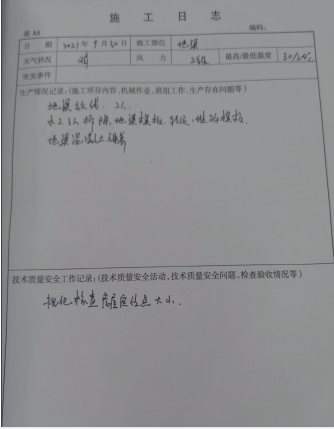 施工日志
表 A8 编码:
日期 2021年9月30日 施工部位 地梁
天气状况 晴 风力 2级 最高/最低温度 30/20℃
突发事件
生产情况记录:(施工项目内容、机械作业、班组工作、生产存在问题等)
地梁放线 2人
木工 拆除地梁模板、转运、堆码模板.
地梁混凝土保养
技术质量安全工作记录:(技术质量安全活动,技术质量安全问题、检查验收情况等)
检查 定位点大小.